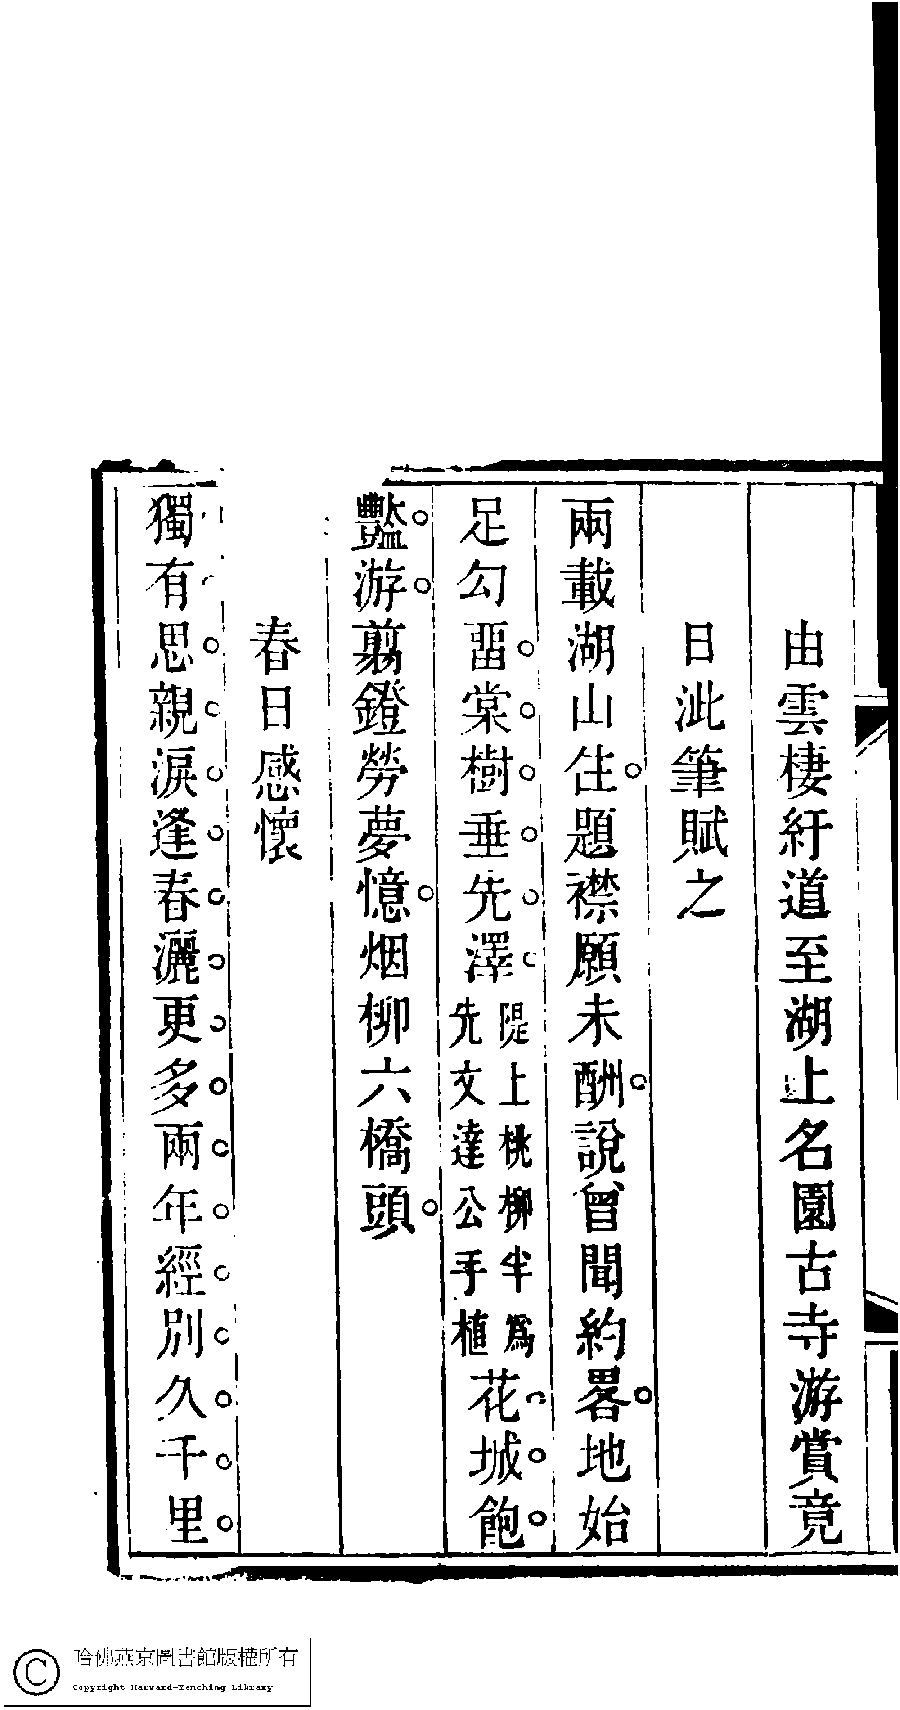 由雲棲紆道至湖上名園古寺游賞竟
日泚筆賦之
兩載湖山住題襟願未酬說曾聞約畧地始
足勾畱棠樹垂先澤隄上桃柳半爲先文達公手植花城飽
豔游翦鐙勞夢憶烟柳六橋頭
春日感懷
獨有思親淚逢春灑更多兩年經別久千里
哈佛燕京圖書館版權所有
Copyright Harvard-Yenching Library